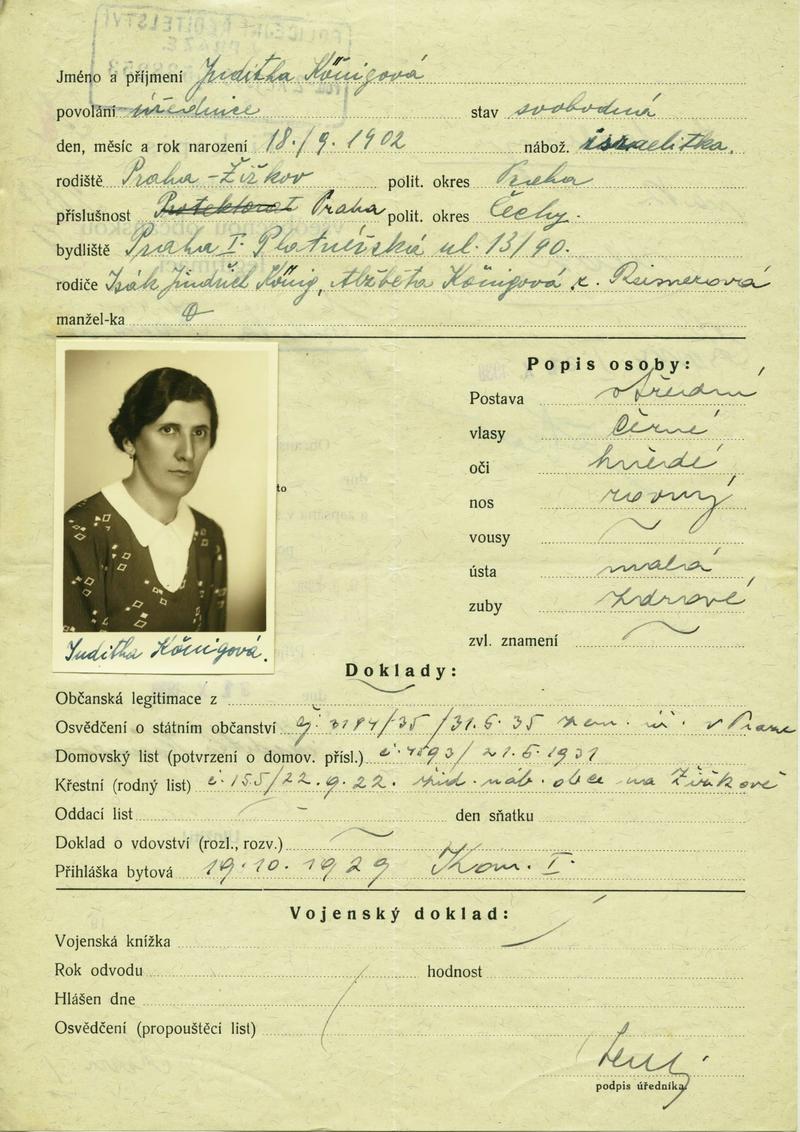 Jméno a příjmení Juditha Königová
povolání úřednice stav svobodná
den, měsíc a rok narození 18./9. 1902 nábož. israelitka.
rodiště Praha-Žižkov polit. okres Praha
příslušnost Protektorat Praha polit. okres Čechy.
bydliště Praha I. Platnéřská ul. 13/90.
rodiče Isák Jindřich König, Alžběta Königová r. Reimerová
manžel-ka 0
to
Juditha Königová.
Popis osoby:
Postava střední
vlasy černé
oči hnědé
nos rovný
vousy
ústa malá
zuby zdravé
zvl. znamení
Doklady:
Občanská legitimace z
Osvědčení o státním občanství čj. 3194/35 /31.5.35 zem. úř. v Praze
Domovský list (potvrzení o domov. přísl.) č. 4593/ 21.5.1931
Křestní (rodný list) č. 155/22.9.22. žid. náb. obce na Žižkově
Oddací list den sňatku
Doklad o vdovství (rozl., rozv.)
Přihláška bytová 19.10.1929 Kom. I.
Vojenský doklad:
Vojenská knížka
Rok odvodu hodnost
Hlášen dne
Osvědčení (propouštěcí list)
podpis úředníka